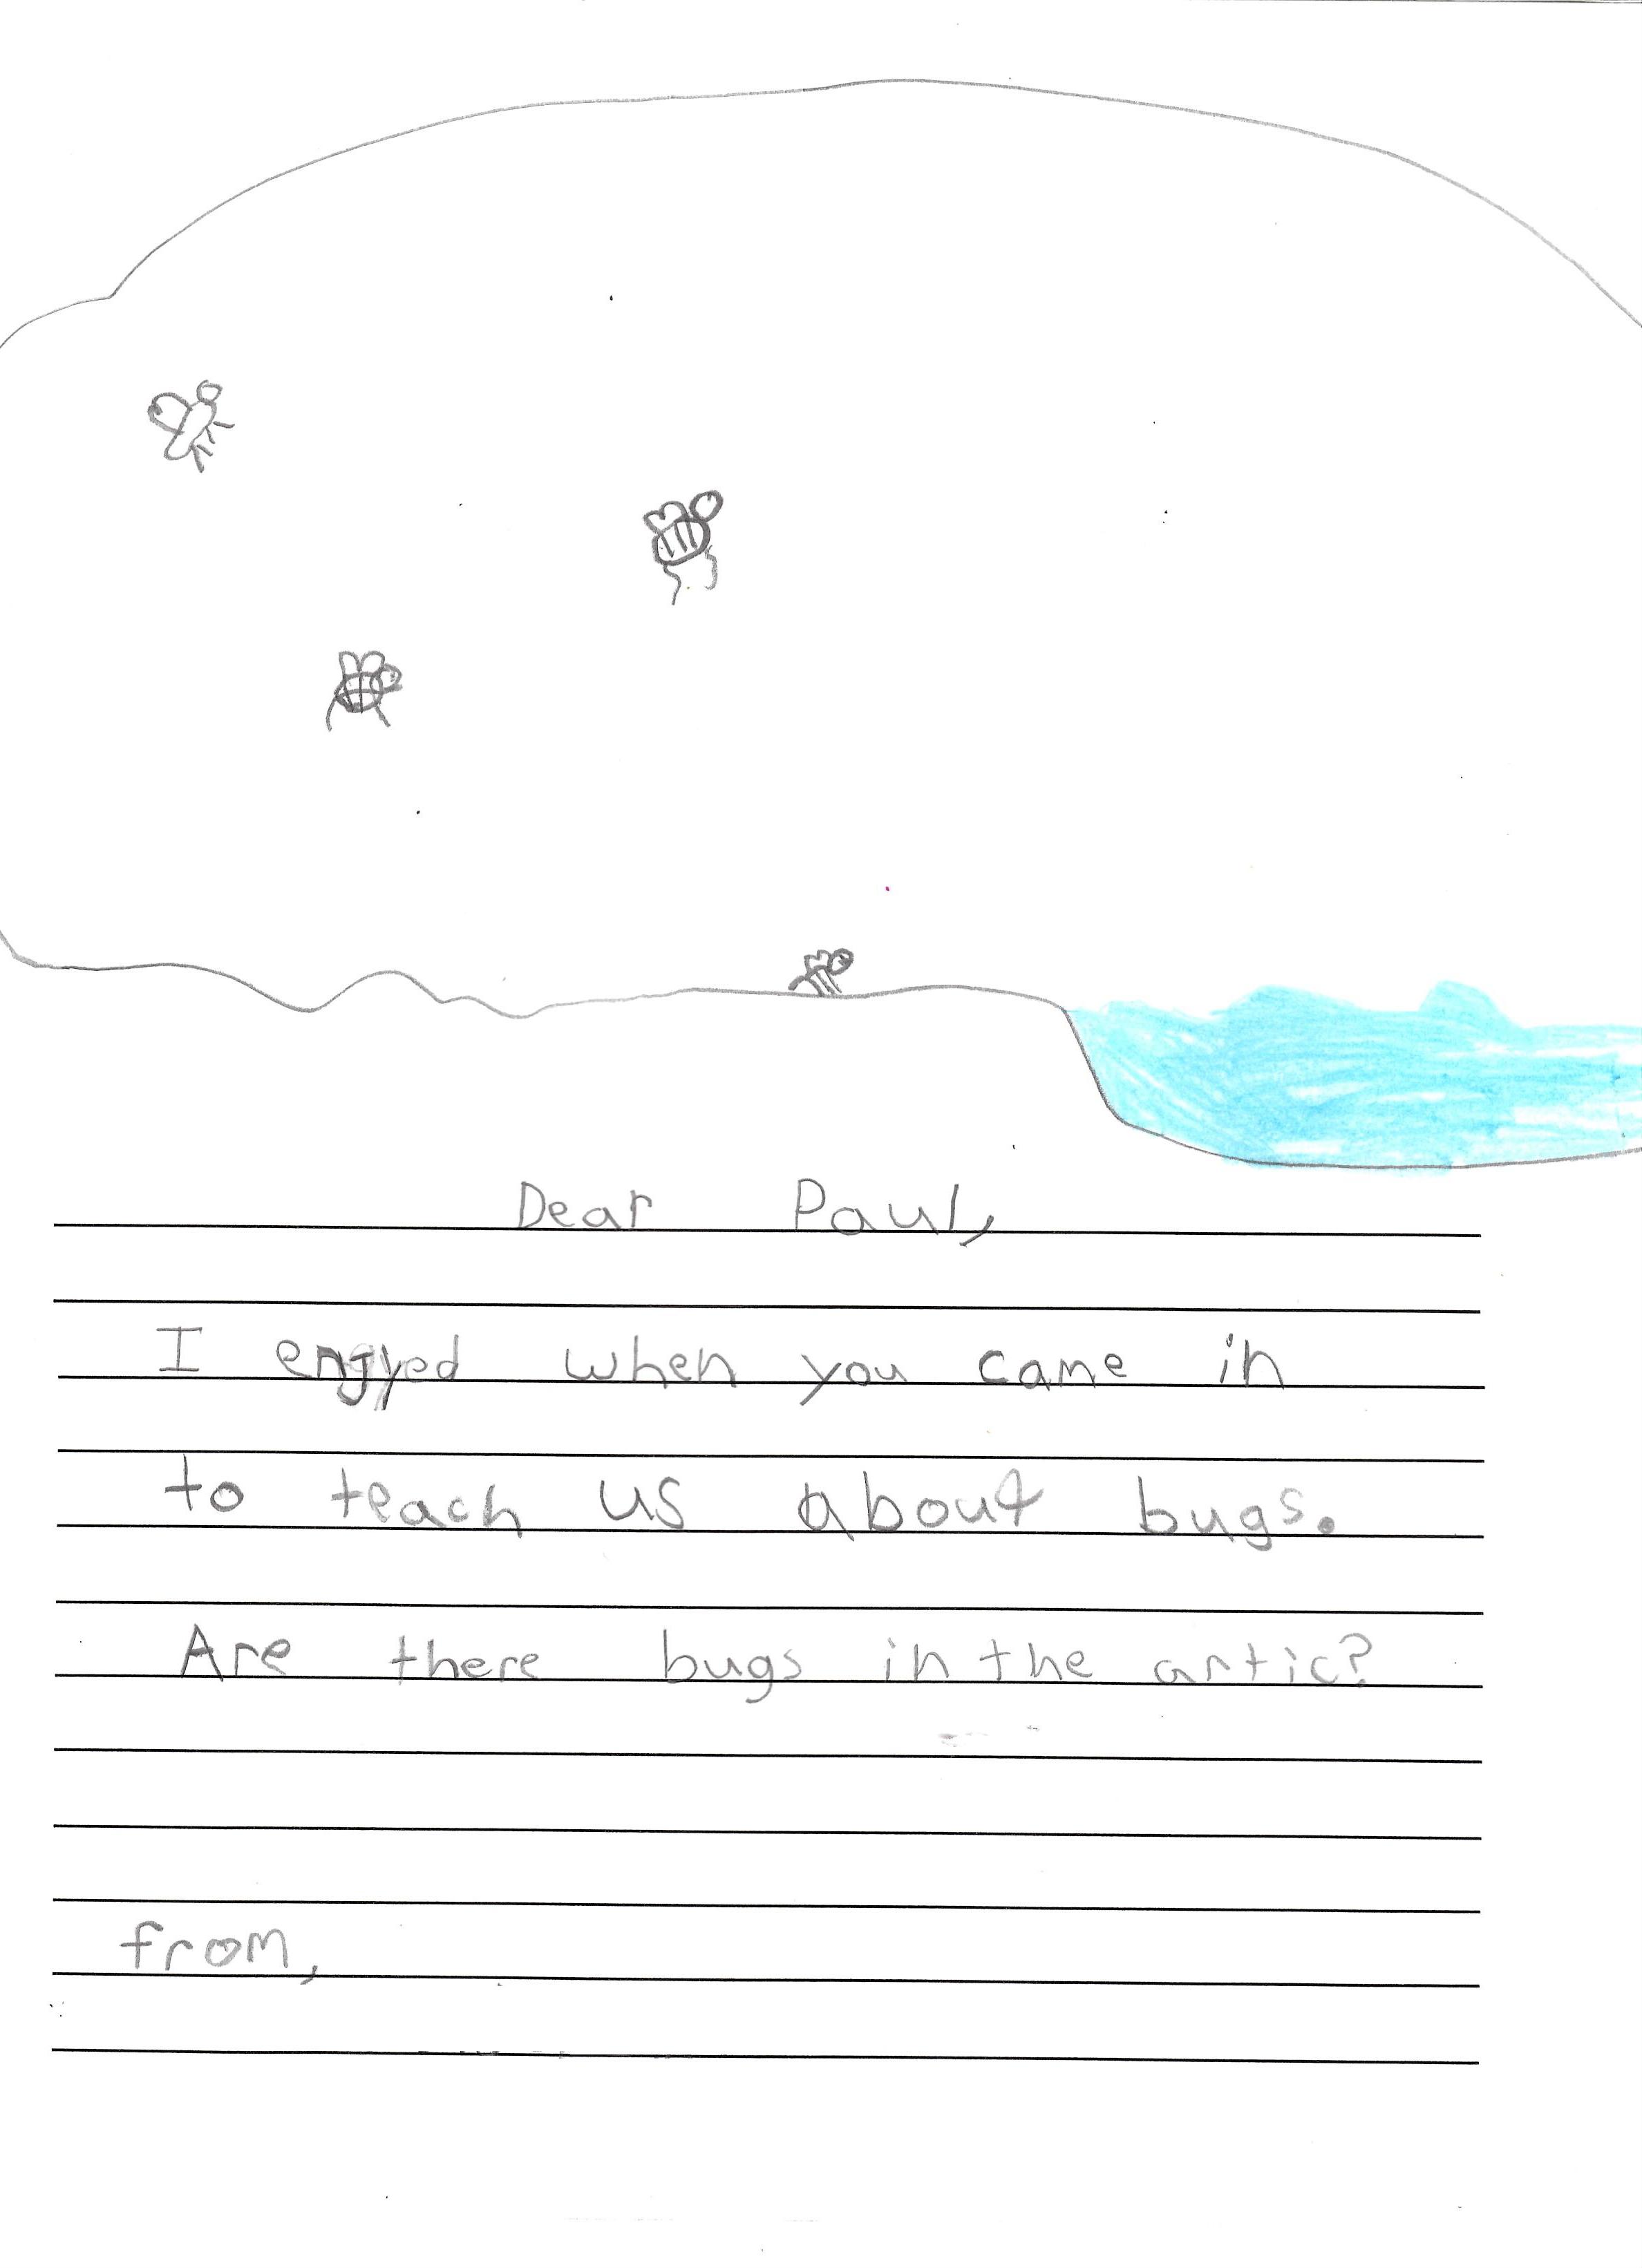 Dear Paul,
I enjyed when you came in
to teach us about bugs.
Are there bugs in the artic?
from,